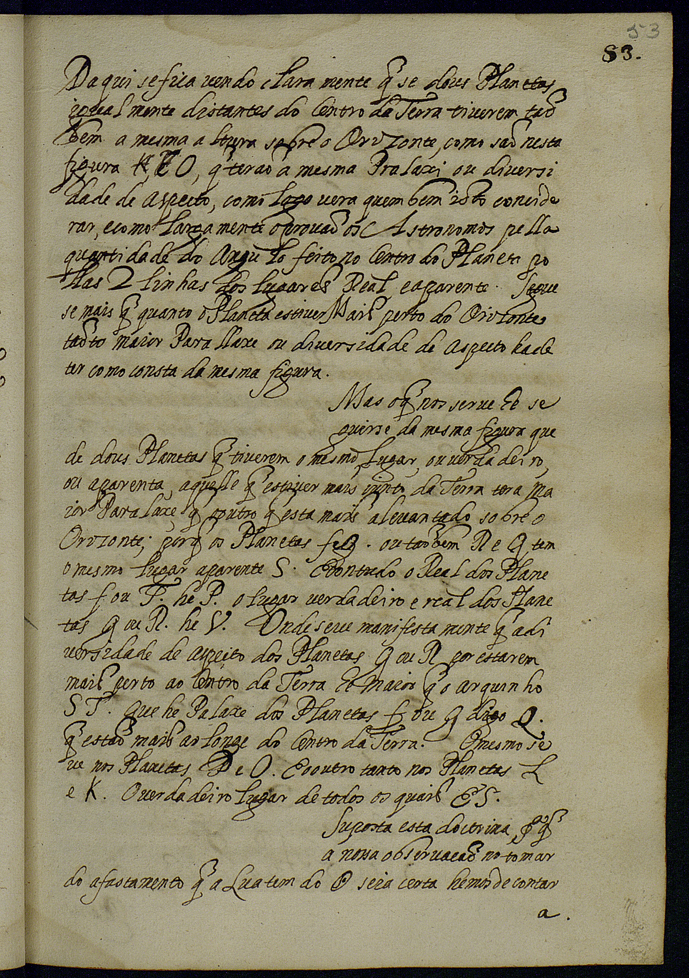 53
83.
Daqui se fica vendo clara mente q̃ se dous Planetas
igual mente distantes do Centro da Terra tiverem tão
bem a mesma altura sobre o Orizonte, como são nesta
figura K, E O, q̃ terão a mesma Pralaxi ou diversi
dade de Aspecto, como logo vera quem bem isto conside
rar, e como largamente o provão os Astronomos pella
quantidade do Angulo feito no Centro do Planeta po
llas 2 linhas dos lugares Real e aparente. Segue
se mais q̃ quanto o Planeta estiver Mais perto do Orizonte
tãoto maior Parallaxe ou diversidade de Aspecto hade
ter como consta da mesma figura.
Mas o q̃ nos serve he se
guirse da mesma figura que
de dous Planetas q̃ tiverem o mesmo lugar, ou verdadeiro,
ou aparente, aquelle q̃ estiver mais junto da Terra tera Ma
ior Paralaxe q̃ outro q̃ esta mais alevantado sobre o
Orizonte; porq̃ os Planetas f e Q. ou tãobem R e G tem
o mesmo lugar aparente S. E contudo o Real dos Plane
tas f ou T. he P. o lugar verdadeiro e real dos Plane
tas G ou R. he V. Onde se ve manifesta mente q̃ a di
versidade de aspeito dos Planetas G ou R por estarem
mais perto ao Centro da Terra he Maior q̃ o arquinho
S T. que he Palaxe dos Planetas f ou q digo Q.
q̃ estão mais ao longe do Centro da Terra. O mesmo se
ve nos Planetas D e O. E outro tanto nos Planetas L
e K. O verdadeiro lugar de todos os quais he S.
Suposta esta doctrina p̃ q̃
a nossa observacão no tomar
do afastamento q̃ a Lua tem do O seia certa hemos de contar
a.